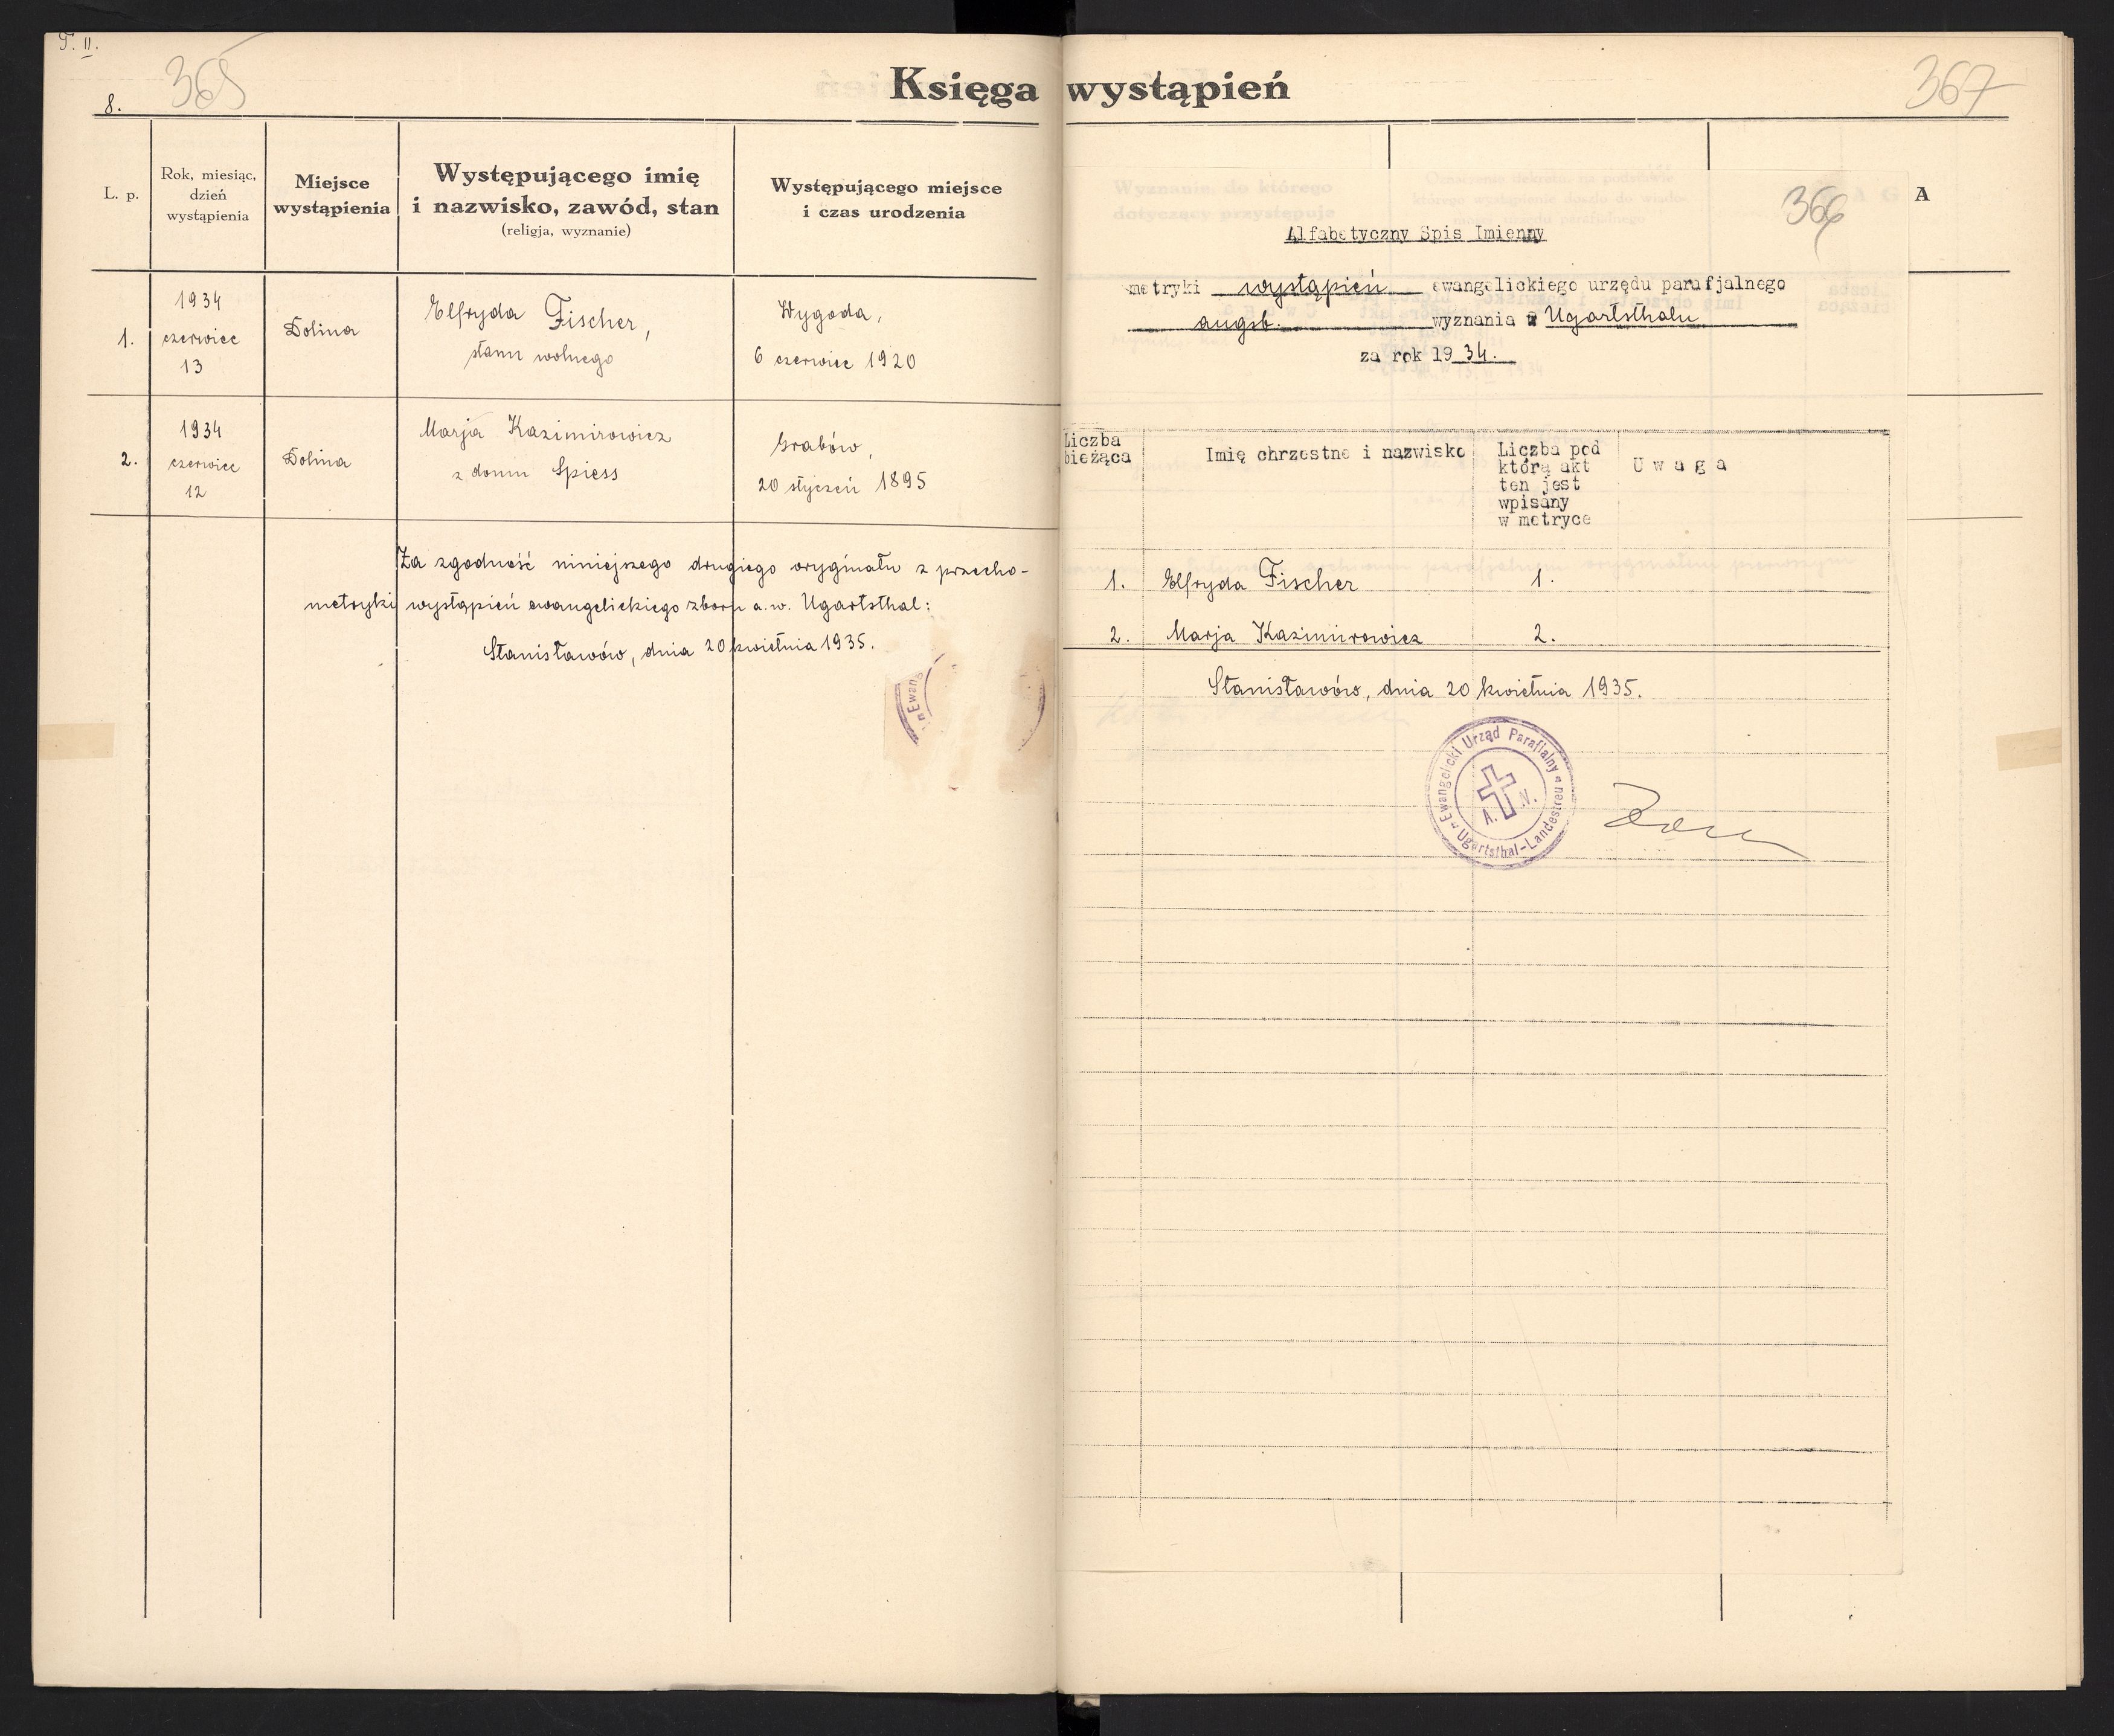 T. II.
8.
365
Księga wystąpień
367
L. p.
Rok, miesiąc,
dzień
wystąpienia
Miejsce
wystąpienia
Występującego imię
i nazwisko, zawód, stan
(religja, wyznanie)
Występującego miejsce
i czas urodzenia
1.
1934
czerwiec
13
Dolina
Elfryda Fischer,
stanu wolnego
Wygoda,
6 czerwiec 1920
2.
1934
czerwiec
12
Dolina
Marja Kazimirowicz
z domu Spiess
Grabów,
20 styczeń 1895
Za zgodność niniejszego drugiego oryginału z przecho-
metryki wystąpień ewangelickiego zboru a. w. Ugartsthal:
Stanisławów, dnia 20 kwietnia 1935.
Ewang
A
366
Alfabetyczny Spis Imienny
metryki wystąpień ewangelickiego urzędu parafjalnego
augsb. wyznania w Ugartsthalu
za rok 1934.
Liczba
bieżąca
Imię chrzestne i nazwisko
Liczba pod
którą akt
ten jest
wpisany
w metryce
Uwaga
1. Elfryda Fischer 1.
2. Marja Kazimirowicz 2.
Stanisławów, dnia 20 kwietnia 1935.
Ewangelicki Urząd Parafialny
A. W.
Ugartsthal-Landestreu